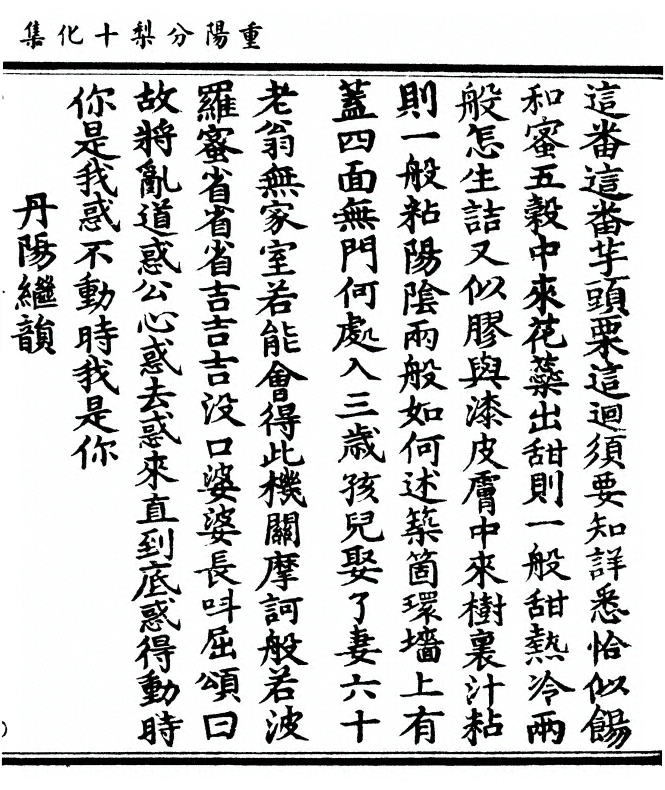 重陽分梨十化集
這番這番芋頭栗這迴須要知詳悉恰似餳
和蜜五穀中來花藥出甜則一般甜熱冷兩
般怎生詰又似膠與漆皮膚中來樹裏汁粘
則一般粘陽陰兩般如何述築箇環墻上有
蓋四面無門何處入三歲孩兒娶了妻六十
老翁無家室若能會得此機關摩訶般若波
羅蜜省省省吉吉吉没口婆婆長呌屈頌曰
故將亂道惑公心惑去惑來直到底惑得動時
你是我惑不動時我是你
丹陽繼韻